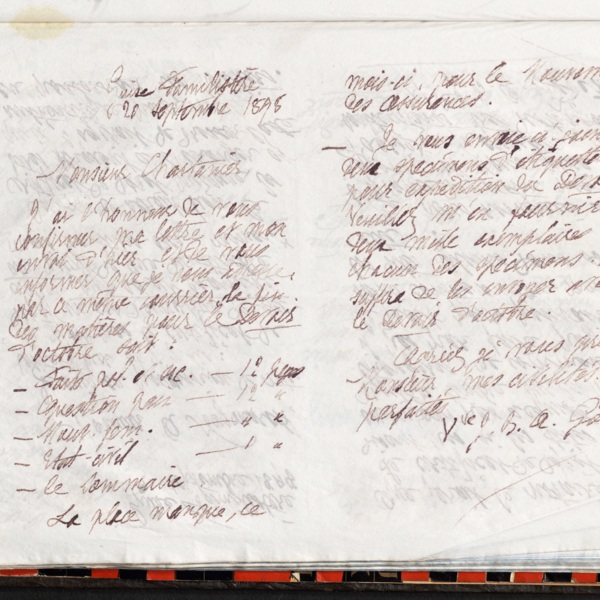 Guise Familistère
20 septembre 1898
Monsieur Chastanier
J'ai l'honneur de vous
confirmer ma lettre et mon
envoi d'hier et de vous
informer que je vous adresse
par ce même courrier, la fin
des matières pour le Devoir
d'octobre soit :
— Faits pol. et soc. — 12 pages
— Question — 12 "
— Mouv. fém. — 4 "
— Etat-civil — 1 "
— Le Sommaire
La place manque, ce
mois-ci, pour le Mouvement
des assurances.
— Je vous envoie ci-joint
deux spécimens d'étiquettes
pour expédition du Devoir
Veuillez m'en fournir
deux mille exemplaires
chacun des spécimens.
suffira de les envoyer avec
le Devoir d'octobre.
Agréez, je vous prie
Monsieur, mes civilités
parfaites
Vve J. B. A. Godin